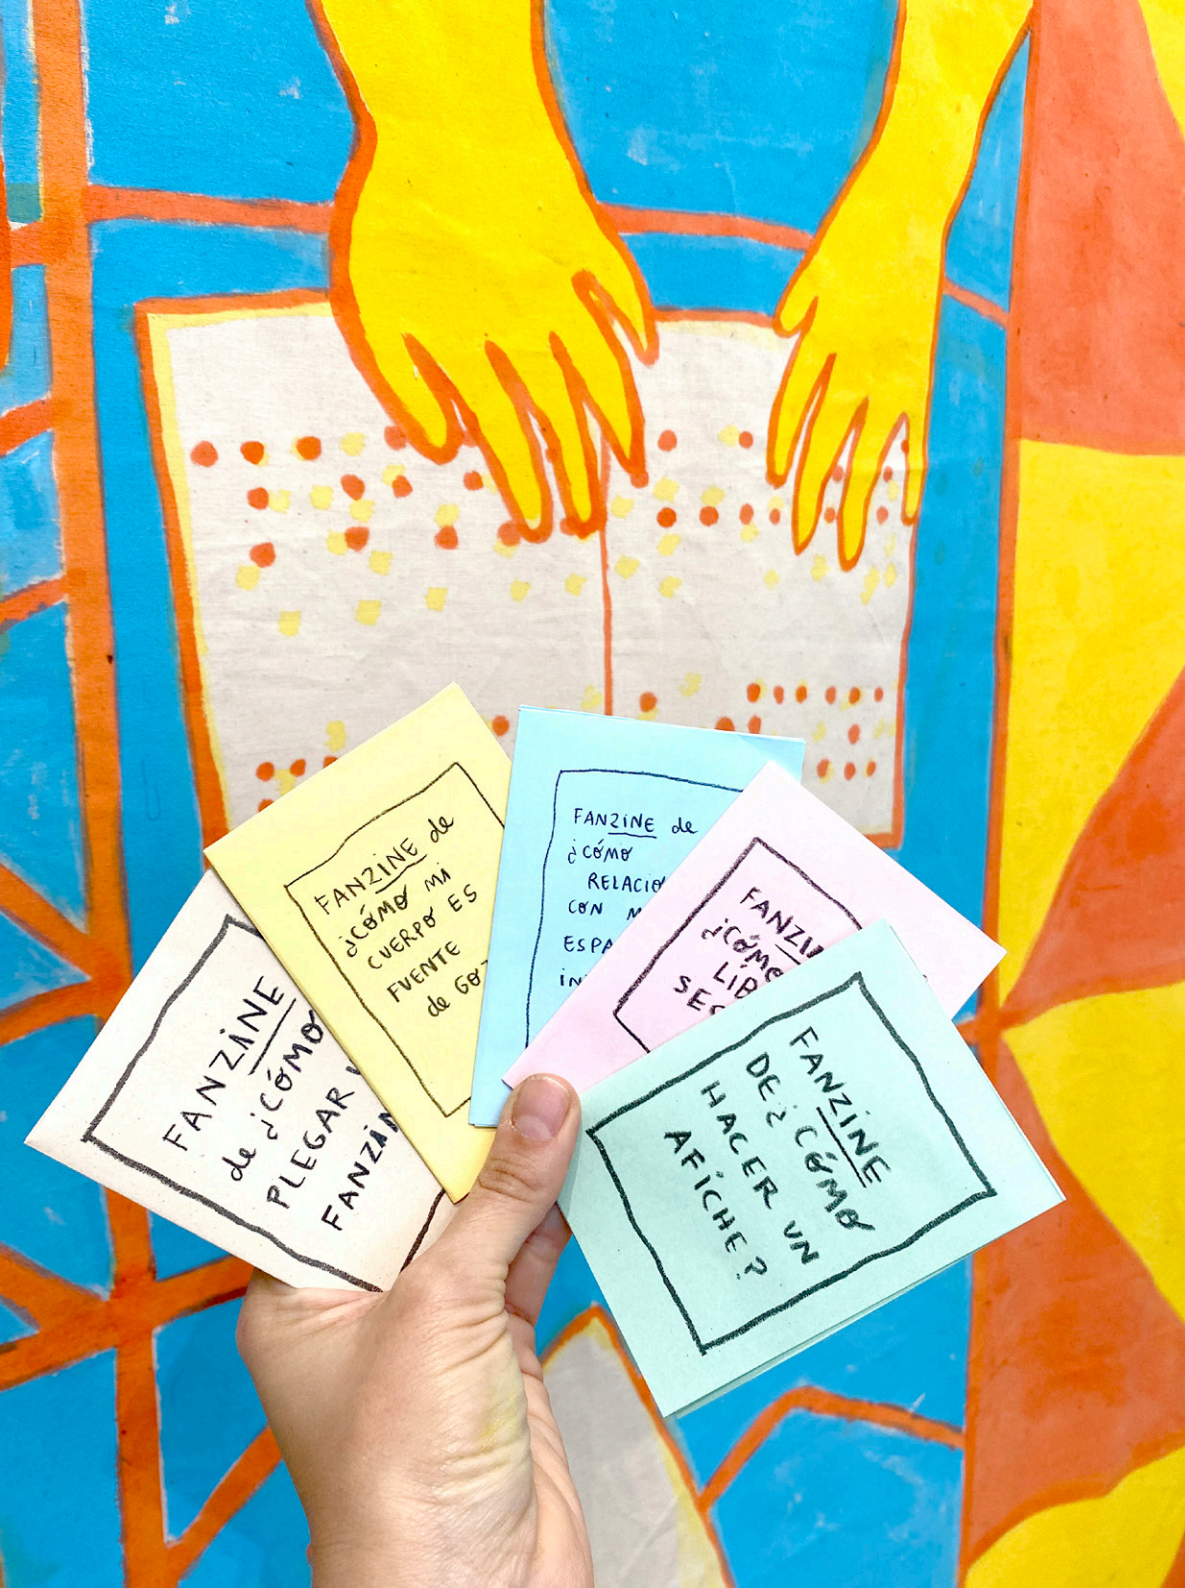 FANZINE
de ¿CÓMO
PLEGAR
FANZIN
FANZINE de
¿CÓMO MI
CUERPO ES
FUENTE
de GO
FANZINE de
¿CÓMO
RELACIO
CON M
ESPA
IN
FANZIN
¿CÓMO
LIB
SEC
FANZINE
DE ¿CÓMO
HACER UN
AFICHE?